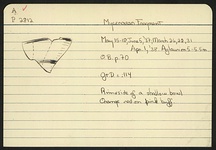 A
P 2842
Mycenaean Fragment
May 15-18, June 5, '37, March 26, 28, 31
Apr 1, '38
O.B. p. 70
gr. D = .114
Rim + side of a shallow bowl
Orange red on pink buff